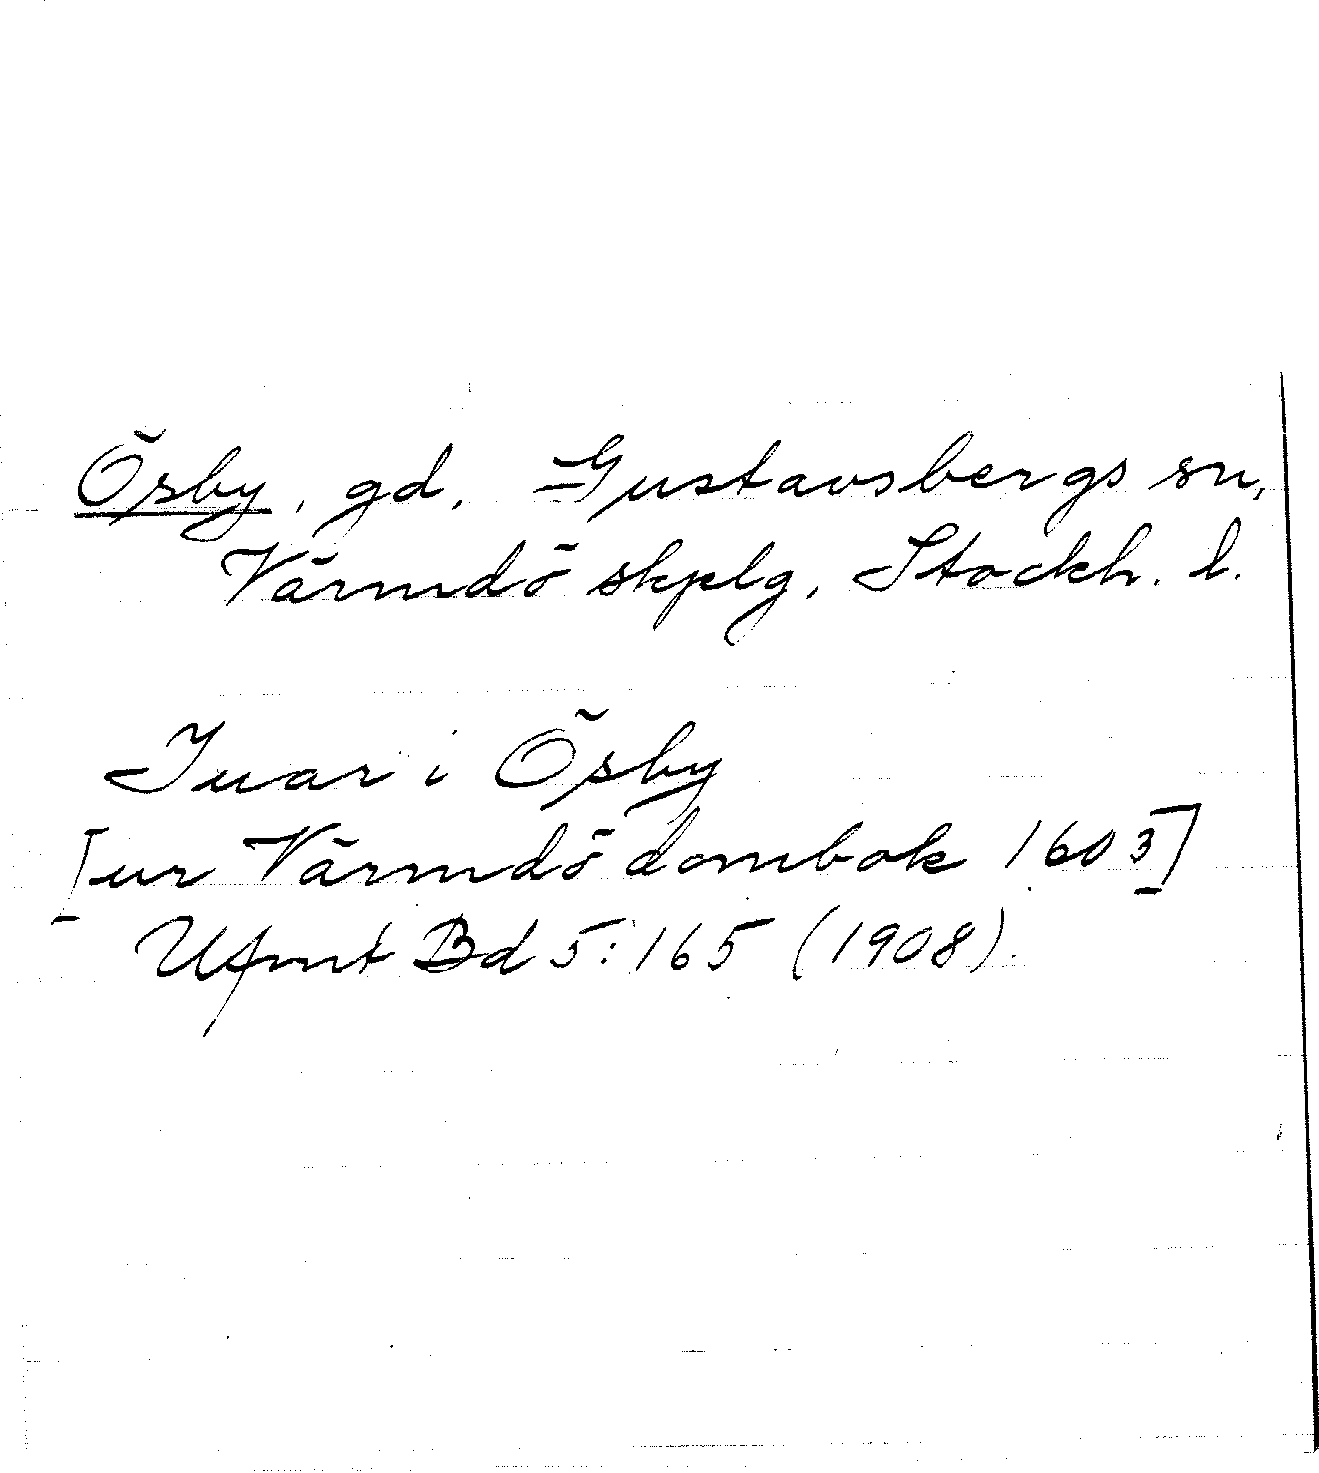 Ösby, gd, Gustavsbergs sn,
Värmdö skplg, Stockh. l.
Iuar i Ösby
[ur Värmdö dombok 1603]
Ufmt Bd 5:165 (1908).